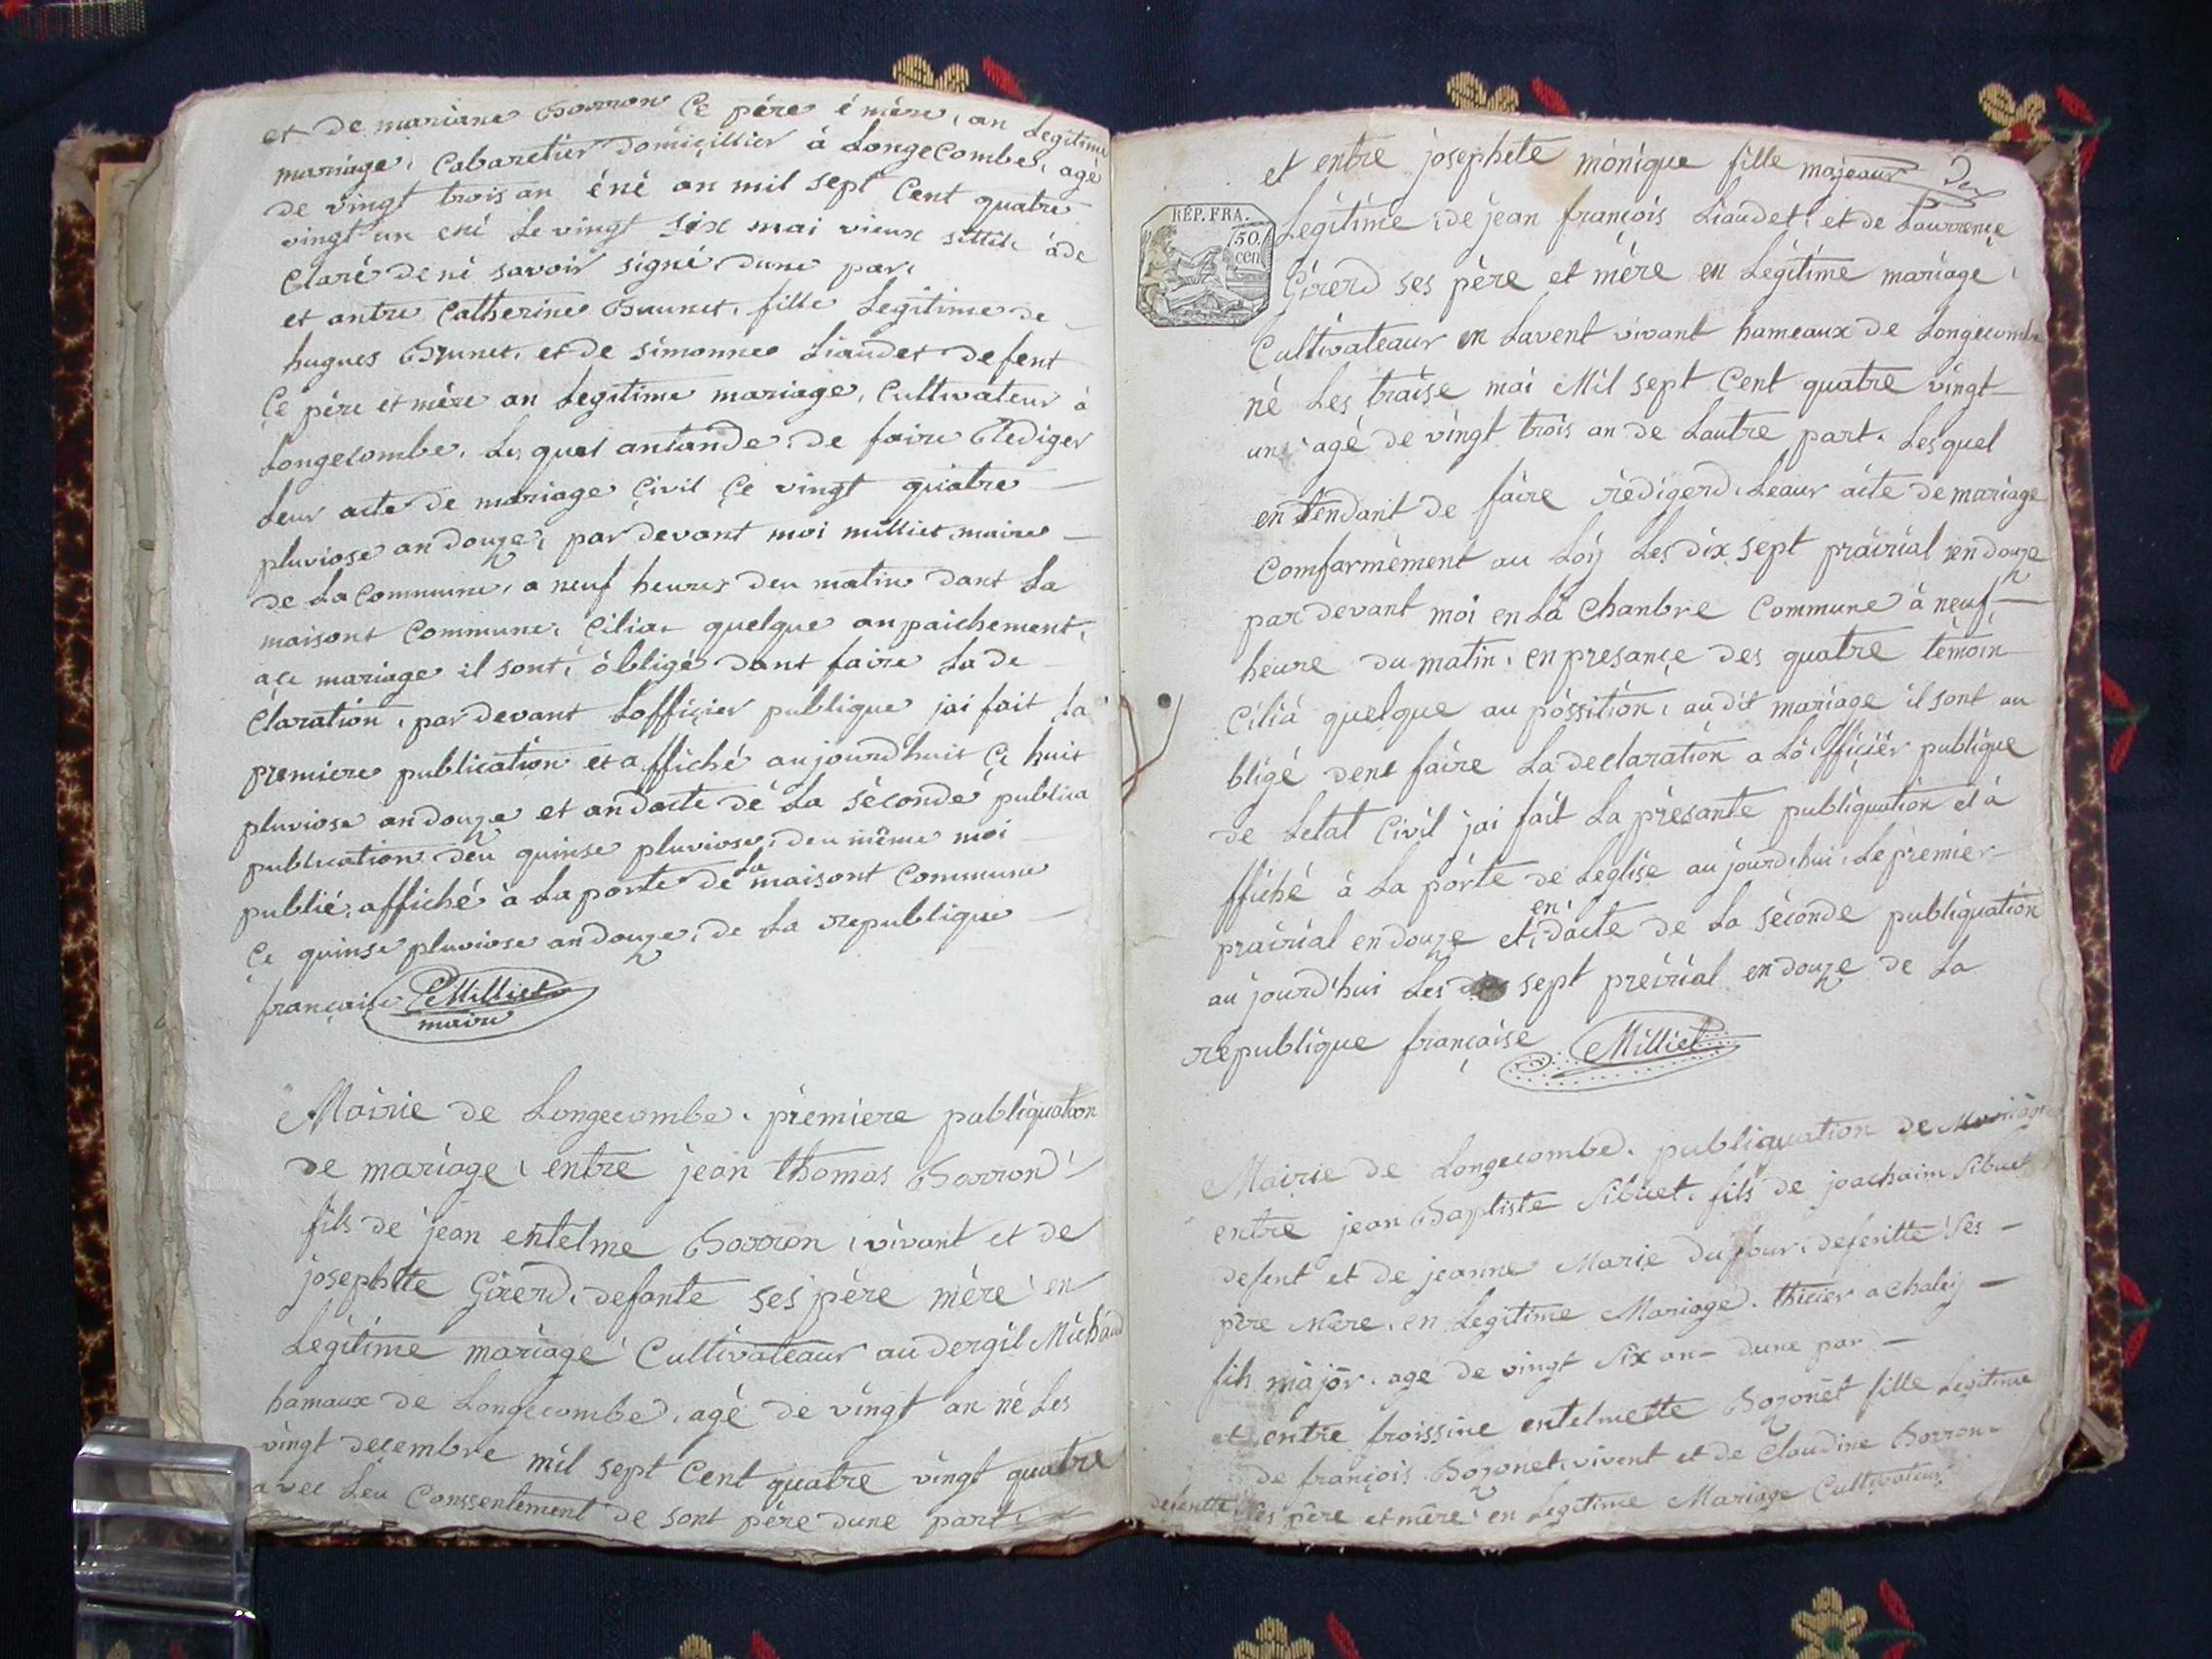 et de mariane Borron Ce père é mère, an Legitime
mariage, Cabaretier domiçillier à Longecombe, agé
de vingt trois an éné an mil sept Cent quatre
vingt un ené Le vingt six mai vieux sittile àde
Claré dené savoir signé, dune par,
et antre Catherine Brunet, fille Legitime de
hugues Brunet, et de simonne Liaudet defent
Çe père et mère an Legitime mariage, Cultivateur à
Longecombe, Les quel antande, de faire Rediger
Leur acte de mariage Çivil Çe vingt quatre
pluviose an douze, par devant moi milliet maire
de La Commune, a neuf heures deu matin dant La
maisont Commune, Cilia quelque anpaichement,
aÇe mariage il sont, óbligé dant faire La de
Claration, par devant Loffiçier publique jai fait La
premiere publication et a ffiché aujourd'huit Çe huit
pluviose an douze et an dacte dé La séconde publica
publication deu quinse pluviose, deu même moi
publié, affiché à La porte de La maisont Commune
Çe quinse pluviose an douze, de La republique
française Milliet
maire
Mairie de Longecombe, premiere publiquation
de mariage, entre jean thomas Borrond
fils de jean entelme Borron, vivant et de
josephtte Girerd, defante ses père mère en
Legitime mariage Cultivateaur au dergil Michaud
hamaux de Longecombe, agé de vingt an né Les
vingt decembre mil sept Cent quatre vingt quatre
avec Leu Conssentement de sont père dune part,
et entre josephete monique fille majeaur
RÉP. FRA.
50.
cen
Legitime, de jean françois Liaudet, et de Laurrençe
Girerd ses père et mère en Legitime mariage,
Cultivateaur en Lavent vivant hameaux de Longecombe
né Les traise mai Mil sept Cent quatre vingt
un, agé de vingt trois an de Lautre part. Lesquel
entendant de faire rédigerd, Leaur acte de mariage
Comfarmément au Loÿ Les dix sept prairial en douze
par devant moi en La Chanbre Commune à neuf
heure du matin, en presançe des quatre témoin
Cilia quelque au póssition, audit mariage il sont au
bligé dent faire La declaration a Lóffiçiér publique
de Letat Civil jai fait La présante publiquation et à
ffiché à La porte de Leglise au jourd'hui, Le prémier
prairial en douze et, en dacte de La séconde publiquation
au jourd'hui Les sept preirial en douze de La
republique française Milliet
Mairie de Longecombe. publiquation de Mariage
entre jean Baptiste Sibuet, fils de joachaim Sibuet
defent et de jeanne Marie dufour, defentte Ses
père Mère, en Legitime Mariage. thicier a Chaleÿ
fils major, agé de vingt Six an dune par
et entre froissine entelmette Bozonet fille Legitime
de françois Bozonet vivent et de Claudine Borron
defentte, Ses père et mère en Legitime Mariage Cultivateur